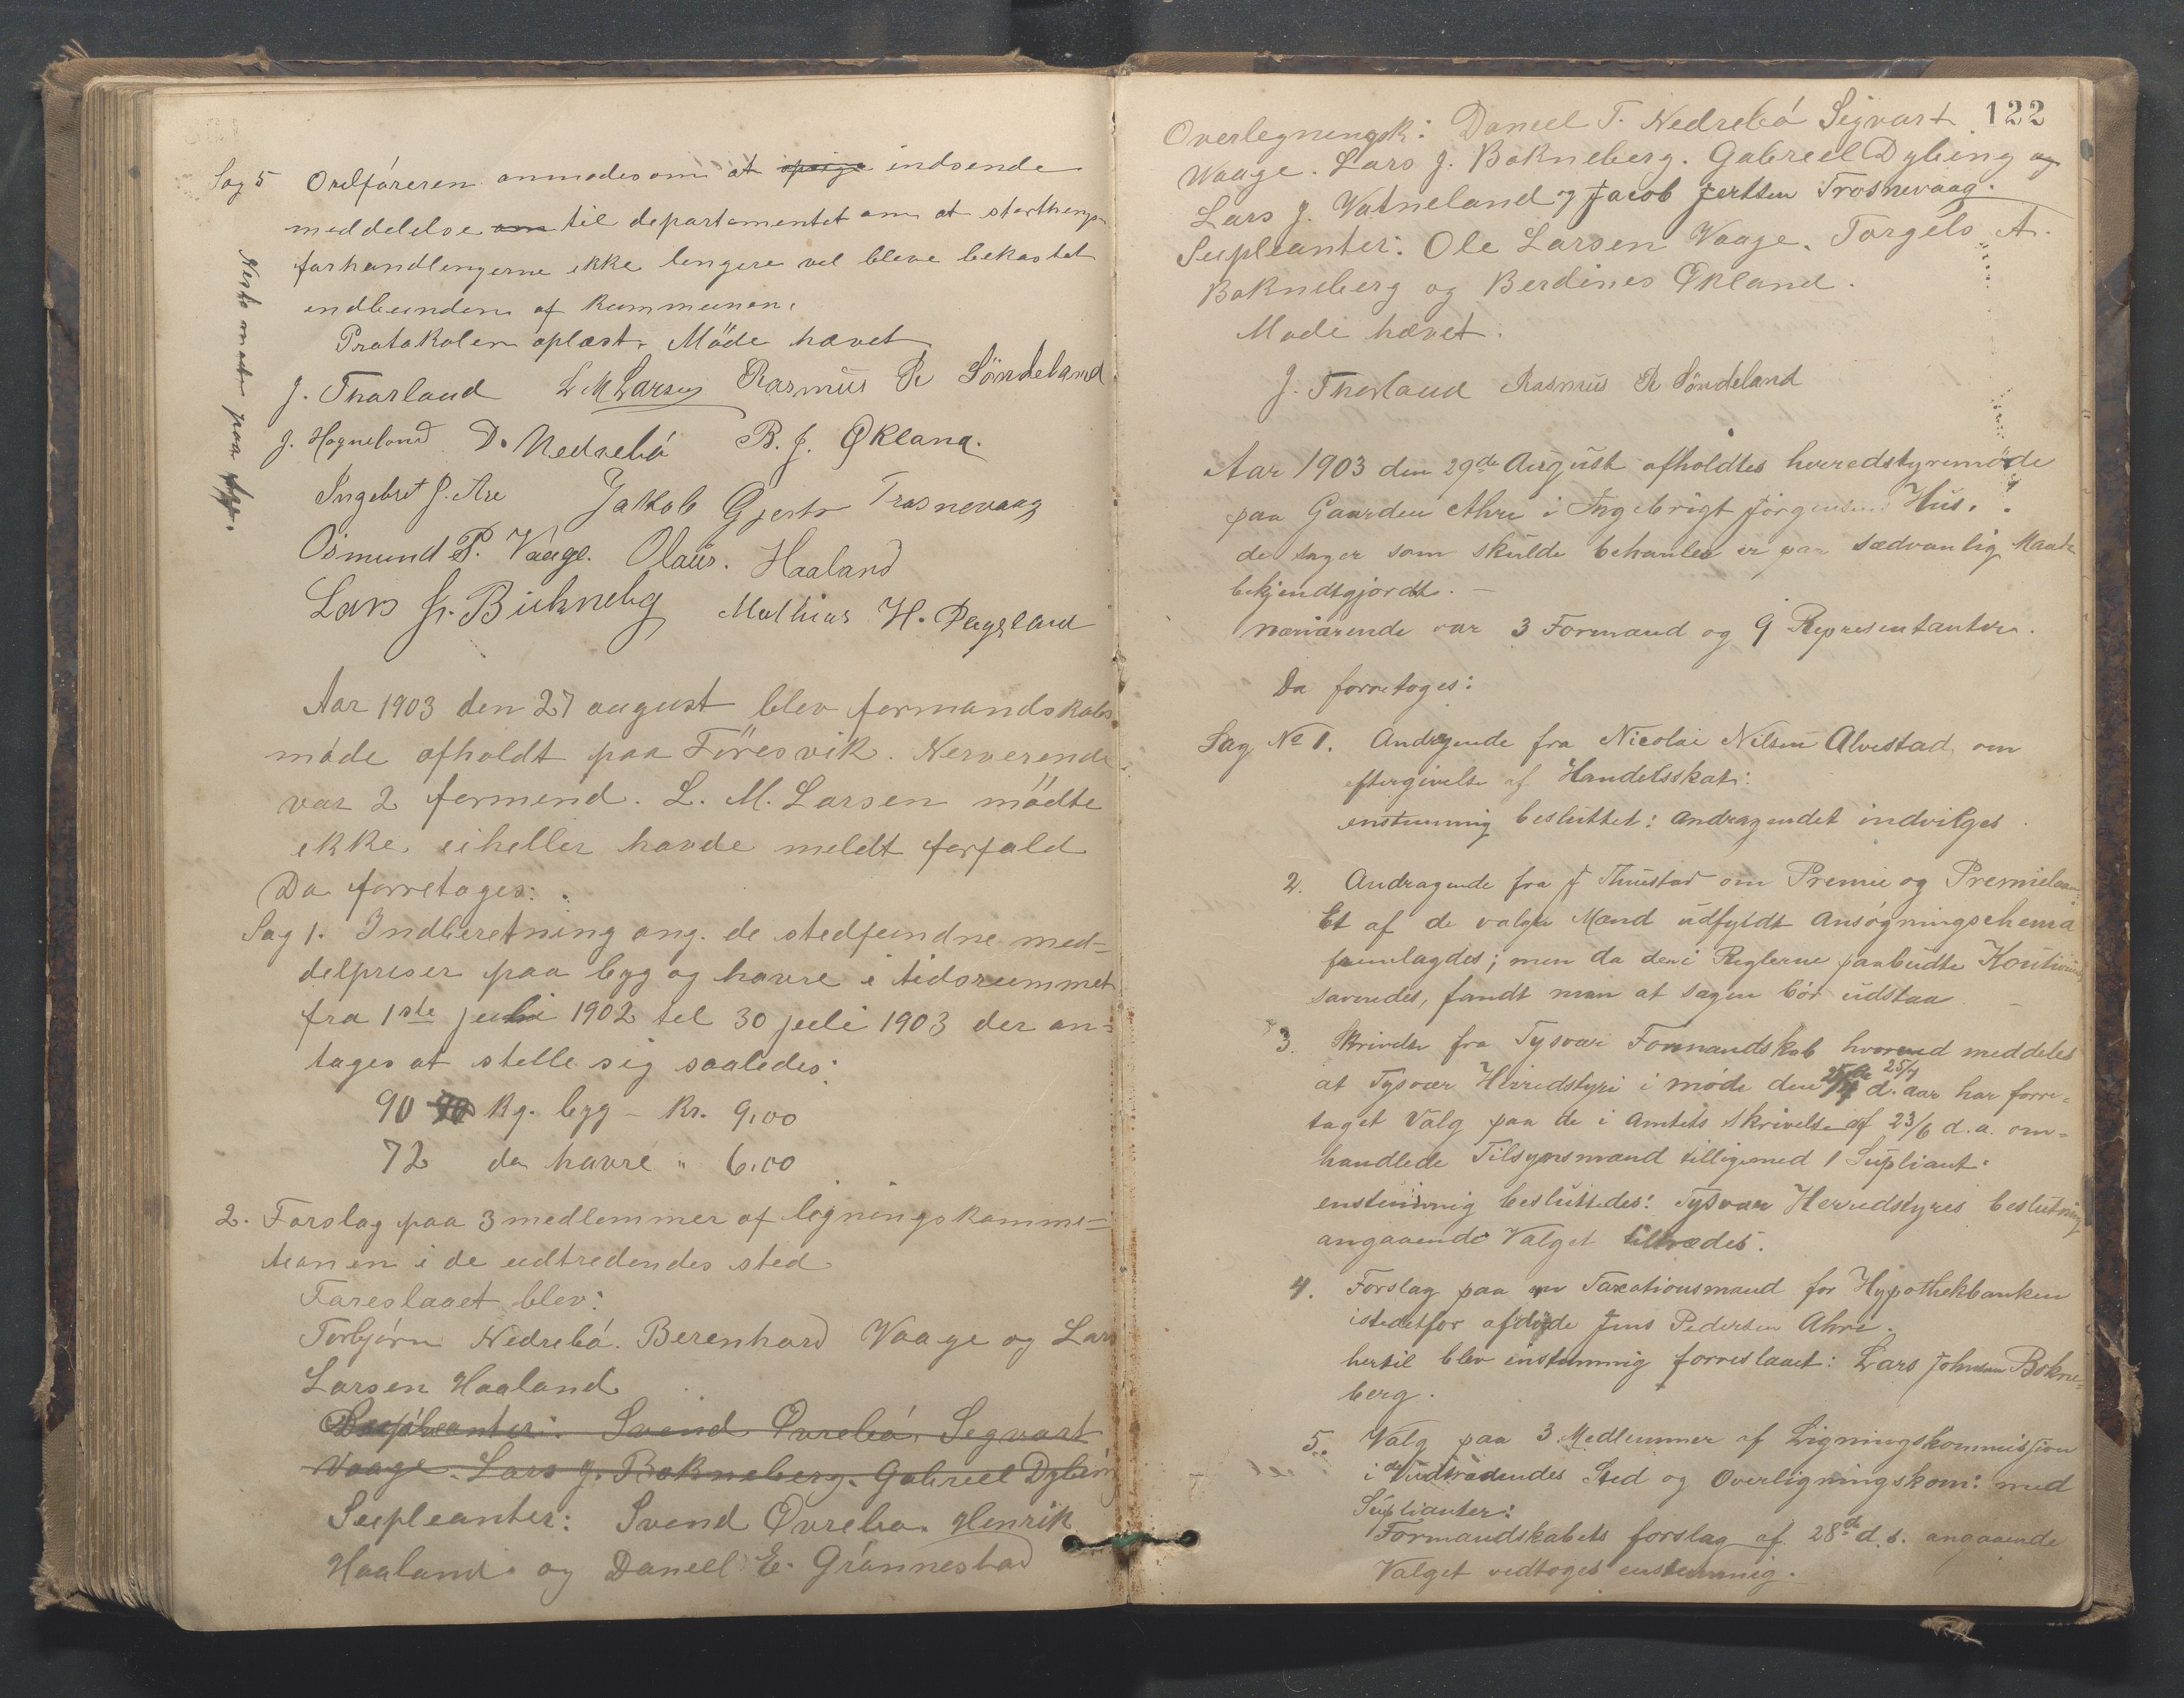 Sag 5 Ordføreren anmodes om at indsende
meddelelse om til departementet om at storthings-
forhandlingerne ikke lengere vel bleve bekostet
indbunden af kummunen.
Protokolen oplæst. Møde hævet
Neste møte paa
J. Thorland L M Larsen Rasmus R Søndeland
J. Hogneland D. Nedrebó B. J. Økland.
Ingebret J. Are Jakob Gjerts Trosnevaag
Osmund P. Vaage. Olaus. Haaland
Lars J. Bukneberg Mathias H.
Aar 1903 den 27 august blev formandskabs
møde afholdt paa Föresvik. Nerverende
var 2 formend. L. M. Larsen mödte
ikke, eiheller havde meldt forfald
Da forretoges:
Sag 1. Indberetning ang. de stedfundne med=
delpriser paa byg og havre i tidsrummet
fra 1ste juli 1902 til 30 juli 1903 der an=
tages at stelle sig saaledes:
90 Kg. byg - Kr. 9,00
72 do havre " 6,00
2. Forslag paa 3 medlemmer af ligningskommi=
sionen i de udtredendes sted
Foreslaaet blev:
Torbjørn Nedrebó. Berenhard Vaage og Lars
Larsen Haaland
Supleanter: Svend Øvrebó, Segvart
Vaage. Lars J. Bokneberg. Gabriel Dybing
Supleanter: Svend Øvrebø. Henrik
Haaland og Daneel E. Grönnestad
122
Overlegningsk: Daneel T. Nedrebó Sigvart
Waage. Lars J. Bokneberg. Gabreel Dybing og
Lars J. Vatneland og Jacob Jertsen Trosnevaag.
Supleanter: Ole Larsen Vaage. Torgels A.
Bokneberg og Berdines Økland.
Møde hævet.
J. Thorland Rasmus R Söndeland
Aar 1903 den 29de August afholdtes herredstyremøde
paa Gaarden Ahre i Ingebrigt Jörgensens Hus.
de sager som skulde behanles er paa sædvanlig Maade
bekjendtgjordt. -
nærværende var 3 Formænd og 9 Representanter.
Da forretoges:
Sag No 1. Andragende fra Nicolai Nilsen Alvestad om
eftergivelse af Handelsskat:
enstemmig besluttet: andragendet indvilges
2. Andragende fra J om Premie og Premielaan:
Et af de valgte Mænd udfyldt ansøgningschema
fremlagdes; men da den i Reglerne paabudte Kontion
savnedes, fandt man at sagen bør udstaa
3. Skrivelse fra Tysvær Formandskab hvorved meddeles
at Tysvær Herredstyre i møde den 25/7 d. aar har forre=
taget Valg paa de i Amtets skrivelse af 23/6 d.a. om=
handlede Tilsynsmænd tilligemed 1 Supliant:
enstemmig besluttedes: Tysvær Herredstyres beslutning
angaaende Valget tiltrædes.
4. Forslag paa en Taxationsmand for Hypothekbanken
istedetfor afdøde Jens Pedersen Ahre.
hertil blev enstemmig forreslaaet: Lars Johnsen Bokne=
berg.
5. Valg paa 3 Medlemmer af Ligningskommissjon
i de Udtrædendes Sted og Overligningskom: med
Suplianter:
Formandskabets forslag af 28de d. s. angaaende
Valget vedtoges enstemmig.